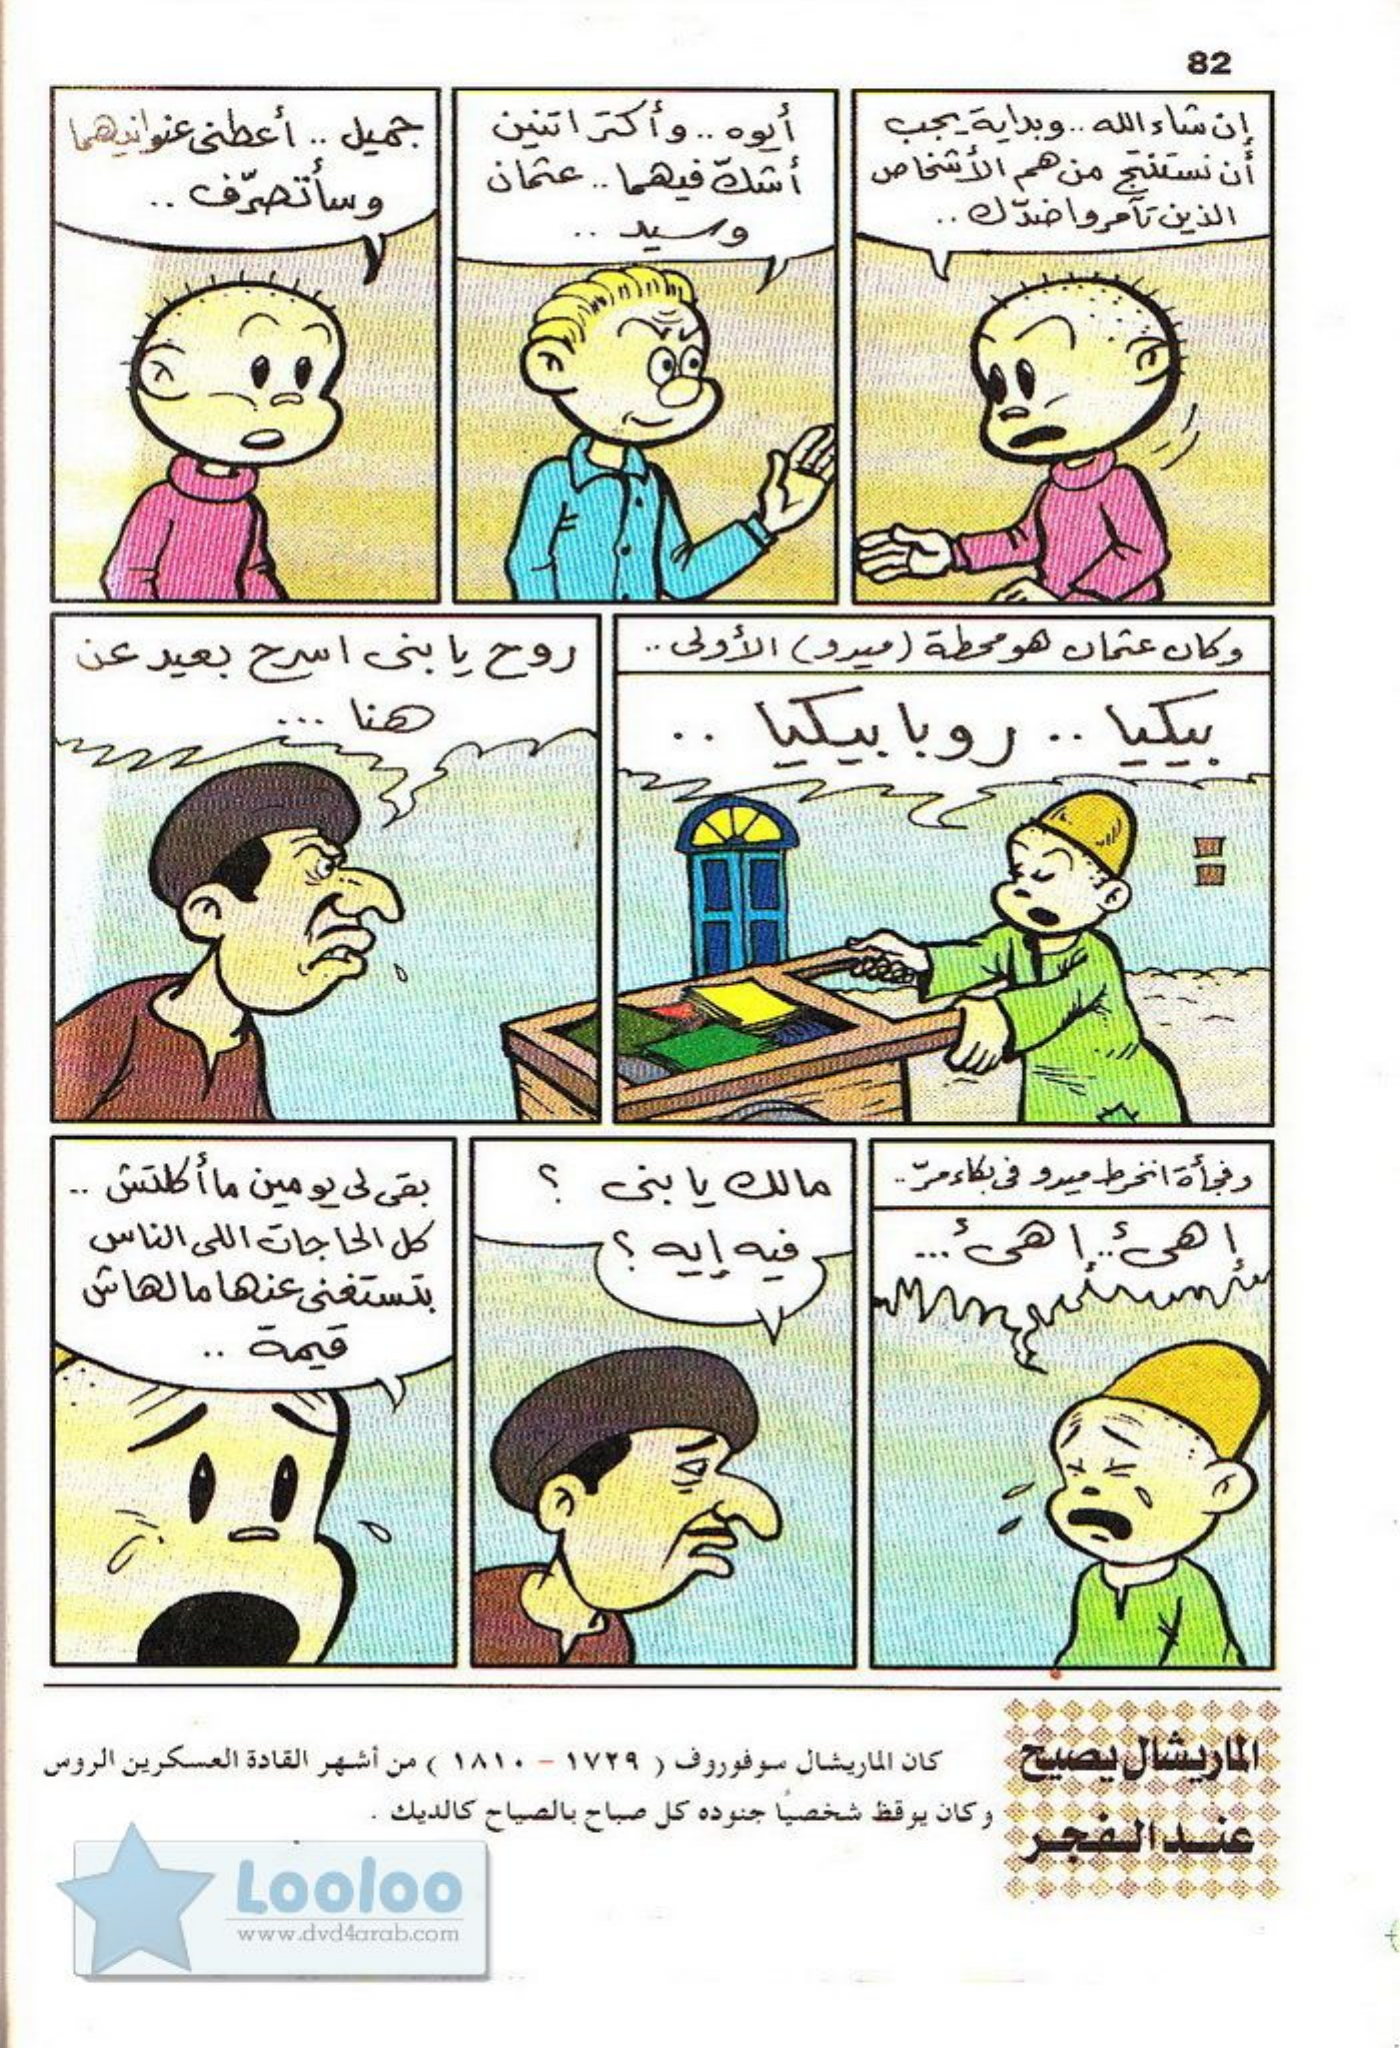 82
إن شاء الله .. وبداية يجب
أن نستنتج من هم الأشخاص
الذين تآمروا ضدّك ..
أيوه .. وأكتر اتنين
أشكّ فيهما .. عثمان
وسيد ..
جميل .. أعطنى عنوانيهما
وسأتصرّف ..
وكان عثمان هو محطة (ميدو) الأولى ..
بيكيا .. روبابيكيا ..
روح يا بنى اسرح بعيد عن
هنا ...
وفجأة انخرط ميدو فى بكاء مرّ ..
إهئ .. إهئ ...
مالك يا بنى ؟
فيه إيه ؟
بقى لى يومين ما أكلتش ..
كل الحاجات اللى الناس
بتستغنى عنها مالهاش
قيمة ..
الماريشال يصيح
عند الفجر
كان الماريشال سوفوروف ( ١٧٢٩ - ١٨١٠ ) من أشهر القادة العسكرين الروس
وكان يوقظ شخصيًا جنوده كل صباح بالصياح كالديك .
Looloo
www.dvd4arab.com